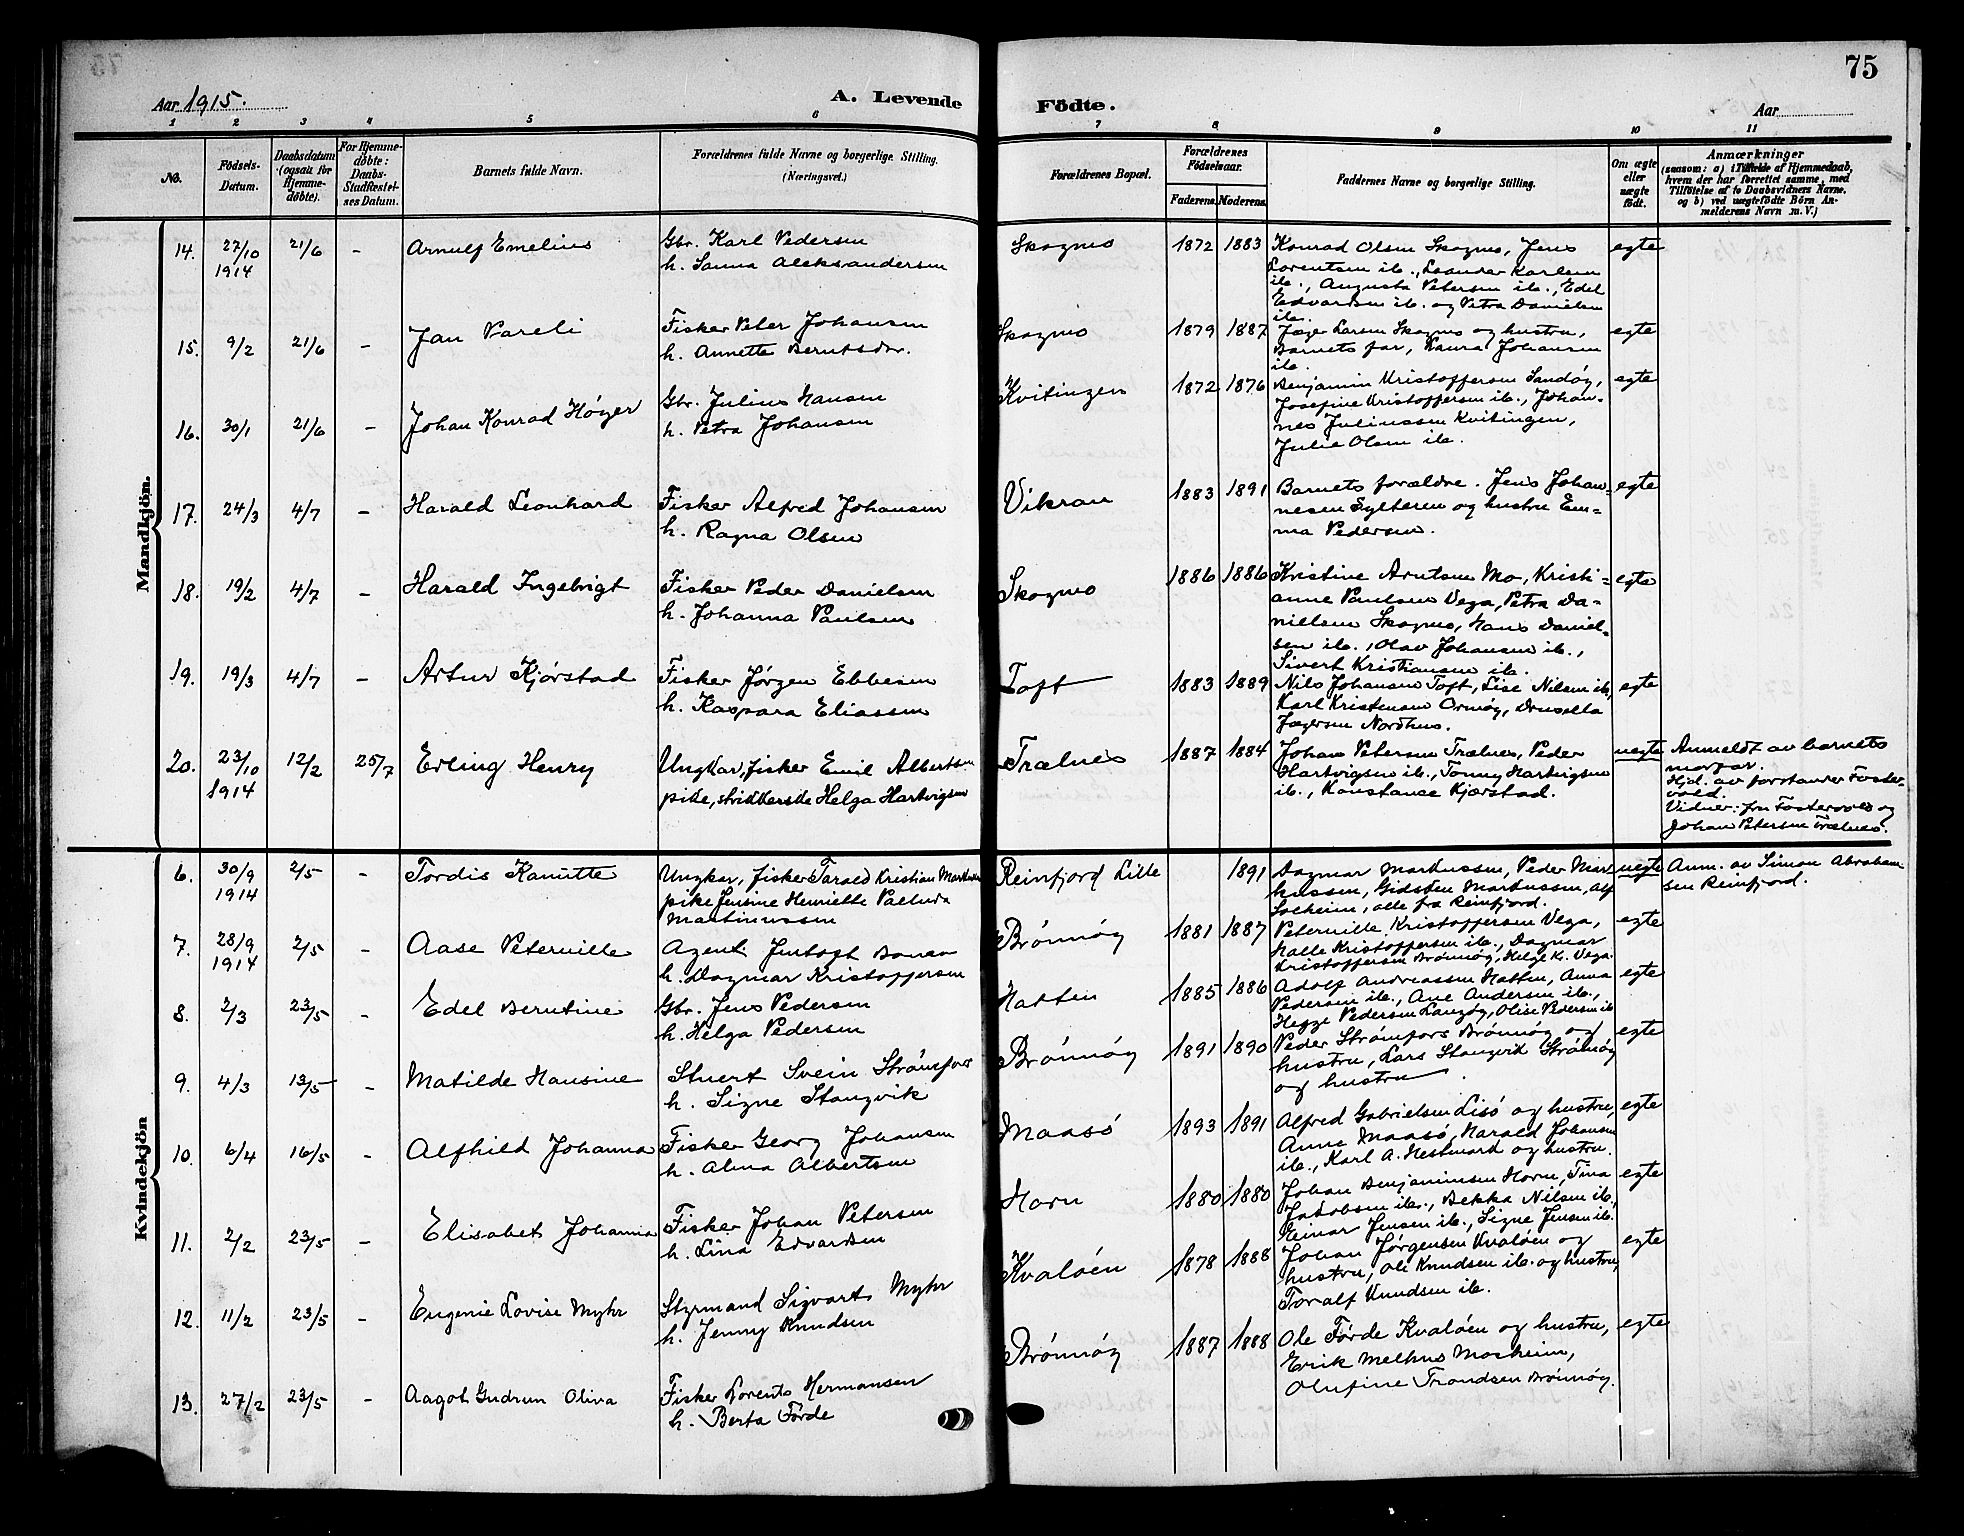 75
Aar 1915.
A. Levende Födte.
Aar
1 2 3 4 5 6 7 8 9 10 11
No.
Födsels-Datum.
Daabsdatum (ogsaa for Hjemme-döbte).
For Hjemme-döbte: Daabs-Stadfæstel-ses Datum.
Barnets fulde Navn.
Forældrenes fulde Navne og borgerlige Stilling. (Næringsvei.)
Forældrenes Bopæl.
Forældrenes Födselsaar.
Faderens. Moderens.
Faddernes Navne og borgerlige Stilling.
Om ægte eller uægte födt.
Anmærkninger
(saasom: a) i Tilfælde af Hjemmedaab, hvem der har forrettet samme, med Tilföielse af to Daabsvidners Navne, og b) ved uægtefödte Börn An-melderens Navn m. V.)
Mandkjön.
14. 27/10 1914 21/6 - Arnulf Emelius
Gbr. Karl Pedersen
h. Sanna Aleksandersen
Skogmo 1872 1883
Konrad Olsen Skogmo, Jens
Lorentsen ib., Leander Karlsen
ib., Augusta Petersen ib., Edel
Edvardsen ib. og Petra Danielsen
ib.
egte
15. 9/2 21/6 - Jan Pareli
Fisker Peter Johansen
h. Annette Berntsdr.
Skogmo 1879 1887
Jæger Larsen Skogmo og hustru,
Barnets far, Laura Johansen
ib.
egte
16. 30/1 21/6 - Johan Konrad Høyer
Gbr. Julius Hansen
h. Petra Johansen
Kvitingen 1872 1876
Benjamin Kristoffersen Sandøy,
Josefine Kristoffersen ib., Johan-
nes Juliussen Kvitingen,
Julie Olsen ib.
egte
17. 24/3 4/7 - Harald Leonhard
Fisker Alfred Johansen
h. Ragna Olsen
Vikran 1883 1891
Barnets forældre. Jens Johan-
nesen Sylteren og hustru Em-
ma Pedersen.
egte
18. 19/2 4/7 - Harald Ingebrigt
Fisker Peder Danielsen
h. Johanna Paulsen
Skogmo 1886 1886
Kristine Arntsen Mo, Kristi-
anne Paulsen Vega, Petra Da-
nielsen Skogmo, Hans Daniel-
sen ib., Olav Johansen ib.,
Sivert Kristiansen ib.
egte
19. 19/3 4/7 - Artur Kjørstad
Fisker Jørgen Ebbesen
h. Kaspara Eliassen
Toft 1883 1889
Nils Johansen Toft, Lise Nilsen ib.,
Karl Kristensen Ormøy, Drusella
Jægersen Nordhus.
egte
20. 23/10 1914 12/2 25/7 Erling Henry
Ungkar, fisker Emil Albertsen
pike, stridkerske Helga Hartvigsen
Trælnes 1887 1884
Johan Petersen Trælnes, Peder
Hartvigsen ib., Tonny Hartvigsen
ib., Konstance Kjørstad.
uegte
Anmeldt av barnets
morfar.
Hjd. av forstander Foster-
vold.
Vidner: fru Fostervold og
Johan Petersen Trælnes.
Kvindekjön
6. 30/9 1914 2/5 - Tordis Kanutte
Ungkar, fisker Tarald Kristian Markussen
pike Jensine Henriette
Martinussen
Reinfjord Lille 1891
Dagmar Markussen, Peder Mar-
kussen, Gidsken Markussen, Alf
Solheim, alle fra Reinfjord.
uegte
Anm. av Simon Abraham-
sen Reinfjord.
7. 28/9 1914 2/5 - Aase Peternille
Agent Jentoft
h. Dagmar Kristoffersen
Brønnøy 1881 1887
Peternille Kristoffersen Vega,
Halle Kristoffersen ib., Dagmar
Kristoffersen Brønnøy, Helge K. Vega.
egte
8. 2/3 23/5 - Edel Berntine
Gbr. Jens Pedersen
h. Helga Pedersen
Hatten 1885 1886
Adolf Andreassen Hatten, Anna
Pedersen ib., Ane Andersen ib.,
Pedersen Langøy, Olise Pedersen ib
egte
9. 4/3 13/5 - Matilde Hansine
Stuert Svein Strømfors
h. Signe Stangvik
Brønnøy 1891 1890
Peder Strømfors Brønnøy og
hustru, Lars Stangvik Strømøy
og hustru.
egte
10. 6/4 16/5 - Alfhild Johanna
Fisker Georg Johansen
h. Alma Albertsen
Maasø 1893 1891
Alfred Gabrielsen Lisø og hustru,
Anne Maasø, Harald Johansen
ib., Karl A. Hestmark og hustru.
egte
11. 2/2 23/5 - Elisabet Johanna
Fisker Johan Petersen
h. Lina Edvardsen
Horn 1880 1880
Johan Benjaminsen Horn, Tina
Jakobsen ib., Bekka Nilsen ib.,
Einar Jensen ib., Signe Jensen ib.
egte
12. 11/2 23/5 - Eugenie Lovise Myhr
Styrmand Sigvart Myhr
h. Jenny Knudsen
Kvaløen 1878 1888
Johan Jørgensen Kvaløen og
hustru, Ole Knudsen ib. og hustru,
Toralf Knudsen ib.
egte
13. 27/2 23/5 - Aagot Gudrun Oliva
Fisker Lorents Hermansen
h. Berta Førde
Brønnøy 1887 1888
Ole Førde Kvaløen og hustru,
Erik Melhus Mosheim,
Olufine Trondsen Brønnøy.
egte